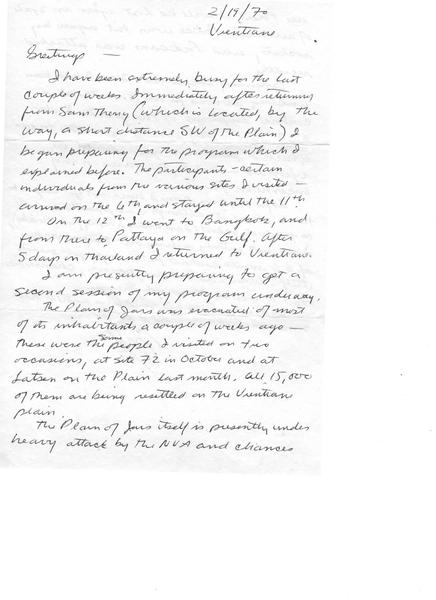 2/19/70
Vientiane
Greetings —
I have been extremely busy for the last
couple of weeks. Immediately after returning
from Sam Thong (which is located, by the
way, a short distance SW of the Plain) I
began preparing for the program which I
explained before. The participants - certain
individuals from the various sites I visited -
arrived on the 4th and stayed until the 11th.
On the 12th I went to Bangkok, and
from there to Pattaya on the Gulf. After
5 days in Thailand I returned to Vientiane.
I am presently preparing to get a
second session of my program underway.
The Plain of Jars was evacuated of most
of its inhabitants a couple of weeks ago —
these were the same people I visited on two
occasions, at site 72 in October and at
Latsen on the Plain last month. All 15,000
of them are being resettled on the Vientiane
plain.
The Plain of Jars itself is presently under
heavy attack by the NVA and chances